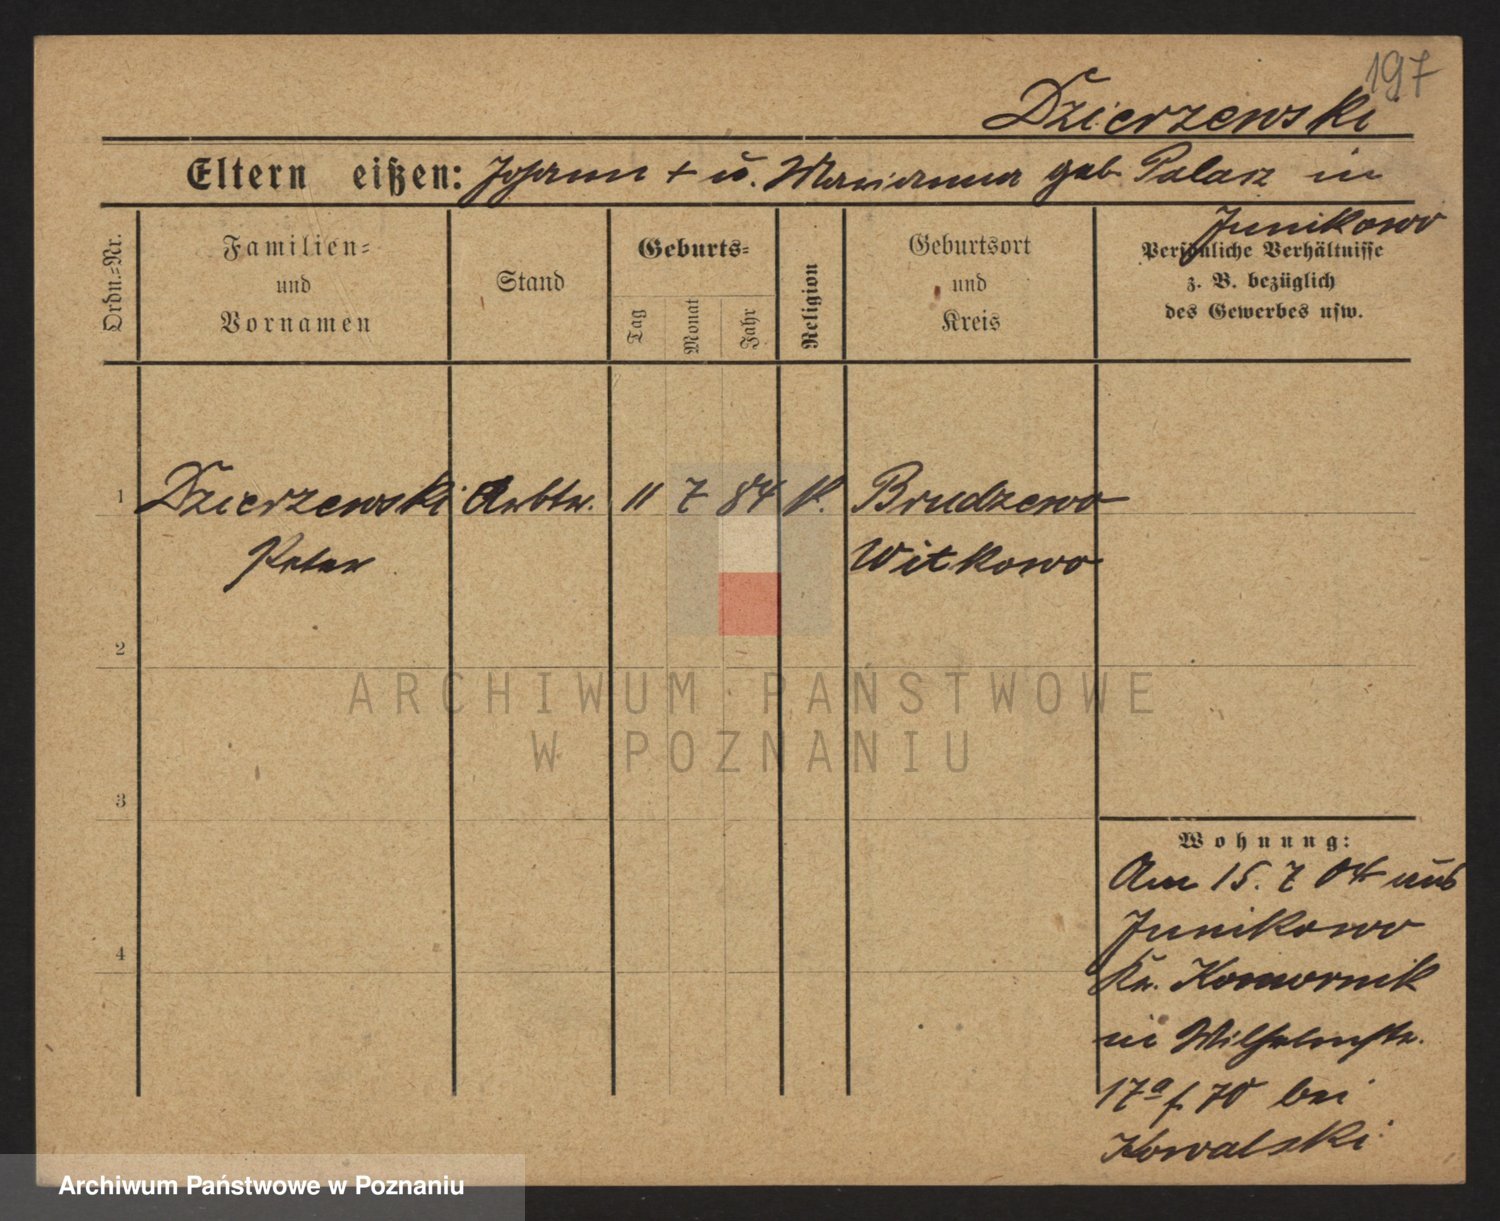 197
Dzierzewski
Eltern eißen: Johann + u. Marianna geb Palacz in
Junikowo
Ordn.=Nr.
Familien=
und
Vornamen
Stand
Geburts=
Tag
Monat
Jahr
Religion
Geburtsort
und
Kreis
Persönliche Verhältnisse
z. B. bezüglich
des Gewerbes usw.
1 Dzierzewski Arbtr. 11 7 84 k. Brudzewo
Peter Witkowo
2
ARCHIWUM PAŃSTWOWE
W POZNANIU
3
4
Wohnung:
Am 15. 7 04 aus
Junikowo
Kr. Komornik
in Wilhelmstr.
17a f. 70 bei
Kowalski
Archiwum Państwowe w Poznaniu